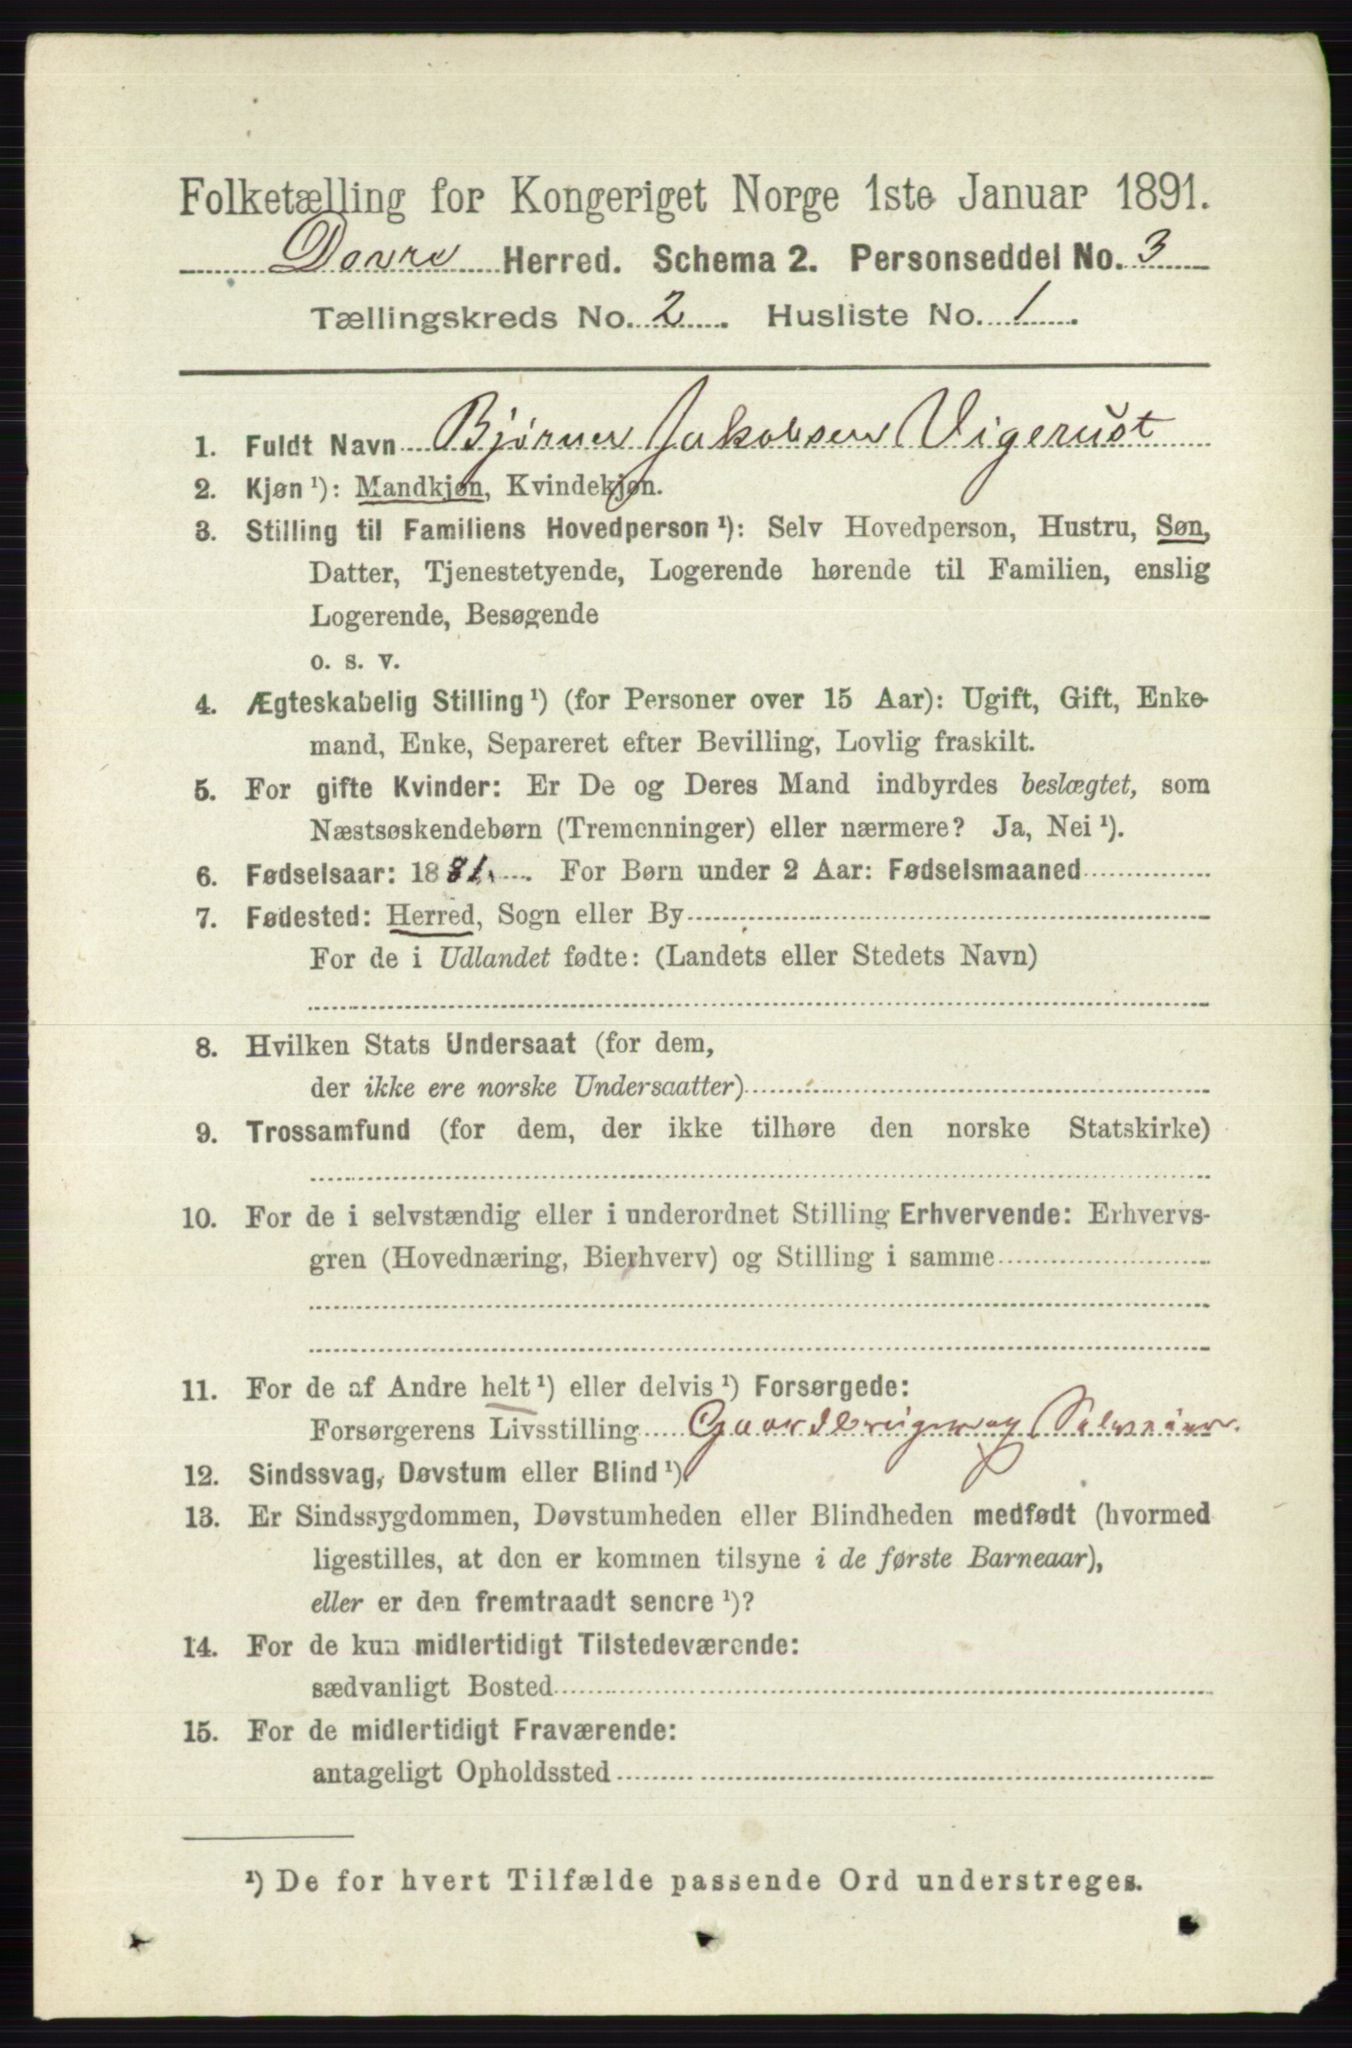 Folketælling for Kongeriget Norge 1ste Januar 1891.
Dovre Herred. Schema 2. Personseddel No. 3
Tællingskreds No. 2. Husliste No. 1.
1. Fuldt Navn Bjørner Jakobsen Vigerust
2. Kjøn ¹): Mandkjøn, Kvindekjøn.
3. Stilling til Familiens Hovedperson ¹): Selv Hovedperson, Hustru, Søn,
Datter, Tjenestetyende, Logerende hørende til Familien, enslig
Logerende, Besøgende
o. s. v.
4. Ægteskabelig Stilling ¹) (for Personer over 15 Aar): Ugift, Gift, Enke-
mand, Enke, Separeret efter Bevilling, Lovlig fraskilt.
5. For gifte Kvinder: Er De og Deres Mand indbyrdes beslægtet, som
Næstsøskendebørn (Tremenninger) eller nærmere? Ja, Nei ¹).
6. Fødselsaar: 1881. For Børn under 2 Aar: Fødselsmaaned
7. Fødested: Herred, Sogn eller By
For de i Udlandet fødte: (Landets eller Stedets Navn)
8. Hvilken Stats Undersaat (for dem,
der ikke ere norske Undersaatter)
9. Trossamfund (for dem, der ikke tilhøre den norske Statskirke)
10. For de i selvstændig eller i underordnet Stilling Erhvervende: Erhvervs-
gren (Hovednæring, Bierhverv) og Stilling i samme
11. For de af Andre helt ¹) eller delvis ¹) Forsørgede:
Forsørgerens Livsstilling Gaardbruger og Selveier.
12. Sindssvag, Døvstum eller Blind ¹)
13. Er Sindssygdommen, Døvstumheden eller Blindheden medfødt (hvormed
ligestilles, at den er kommen tilsyne i de første Barneaar),
eller er den fremtraadt senere ¹)?
14. For de kun midlertidigt Tilstedeværende:
sædvanligt Bosted
15. For de midlertidigt Fraværende:
antageligt Opholdssted
¹) De for hvert Tilfælde passende Ord understreges.